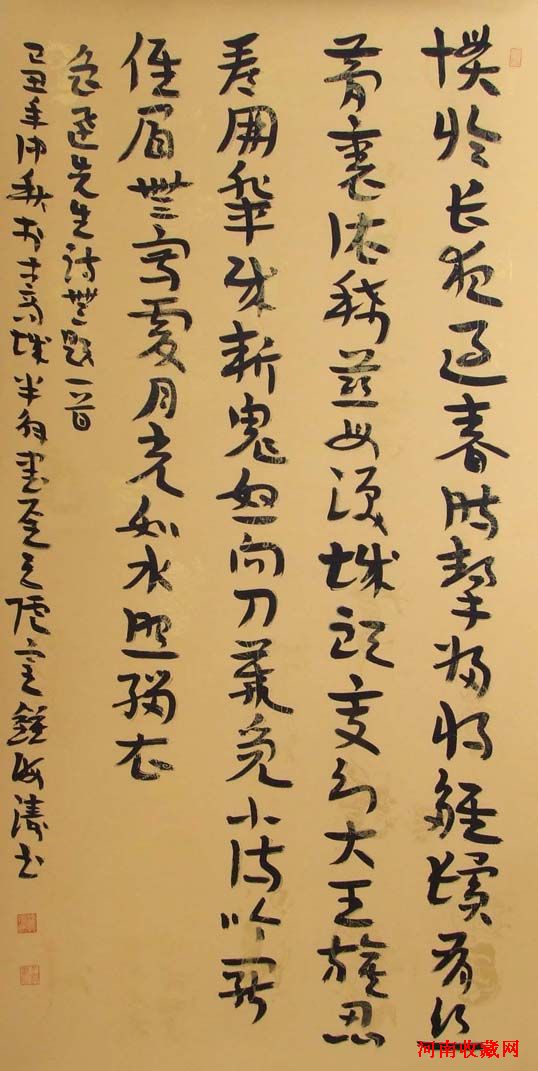 惯於长夜过春时挈妇将雛鬓有丝
梦裏依稀慈母泪城头变幻大王旗忍
看朋輩成新鬼怒向刀丛觅小诗吟罷
低眉無写處月光如水照缁衣
鲁迅先生诗無题一首
己丑年仲秋於古商城半 書 海涛书
河南收藏网